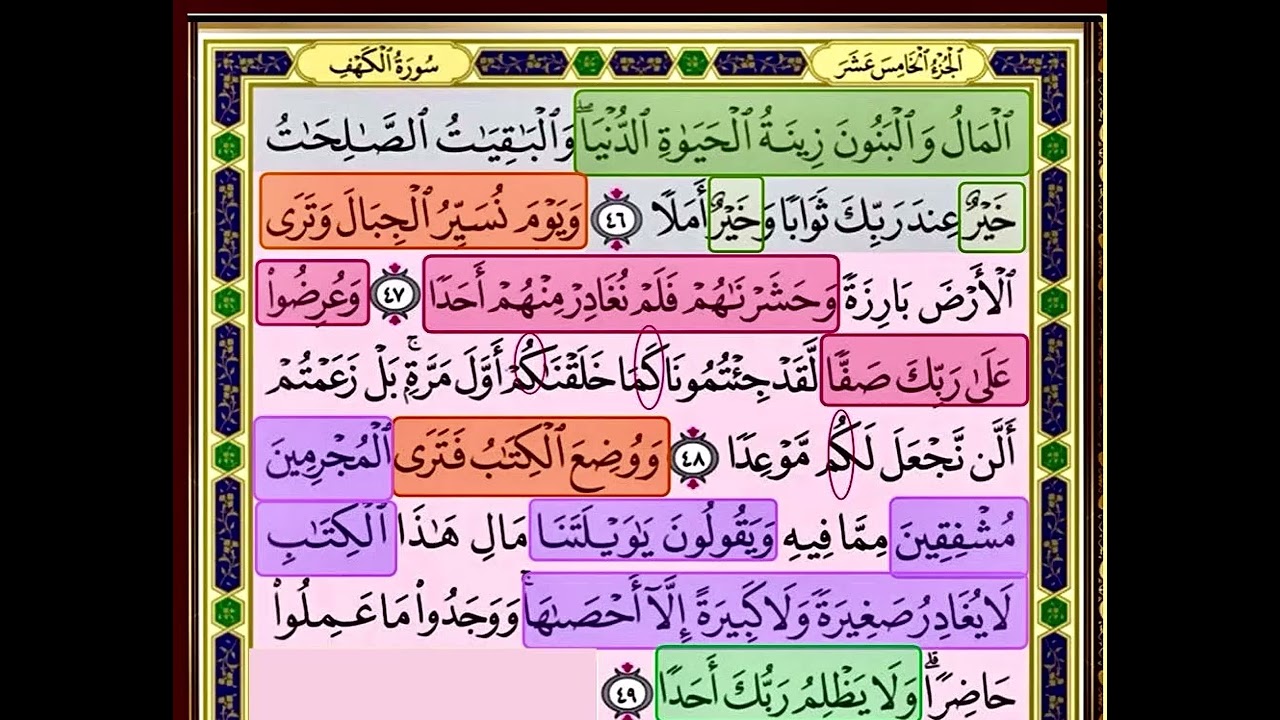 الجزء الخامس عشر
سورة الكهف
ٱلْمَالُ وَٱلْبَنُونَ زِينَةُ ٱلْحَيَوٰةِ ٱلدُّنْيَاۖ وَٱلْبَٰقِيَٰتُ ٱلصَّٰلِحَٰتُ
خَيْرٌ عِندَ رَبِّكَ ثَوَابًا وَخَيْرٌ أَمَلًا ٤٦ وَيَوْمَ نُسَيِّرُ ٱلْجِبَالَ وَتَرَى
ٱلْأَرْضَ بَارِزَةً وَحَشَرْنَٰهُمْ فَلَمْ نُغَادِرْ مِنْهُمْ أَحَدًا ٤٧ وَعُرِضُوا۟
عَلَىٰ رَبِّكَ صَفًّا لَّقَدْ جِئْتُمُونَا كَمَا خَلَقْنَٰكُمْ أَوَّلَ مَرَّةٍۭۚ بَلْ زَعَمْتُمْ
أَلَّن نَّجْعَلَ لَكُم مَّوْعِدًا ٤٨ وَوُضِعَ ٱلْكِتَٰبُ فَتَرَى ٱلْمُجْرِمِينَ
مُشْفِقِينَ مِمَّا فِيهِ وَيَقُولُونَ يَٰوَيْلَتَنَا مَالِ هَٰذَا ٱلْكِتَٰبِ
لَا يُغَادِرُ صَغِيرَةً وَلَا كَبِيرَةً إِلَّآ أَحْصَىٰهَاۚ وَوَجَدُوا۟ مَا عَمِلُوا۟
حَاضِرًاۗ وَلَا يَظْلِمُ رَبُّكَ أَحَدًا ٤٩